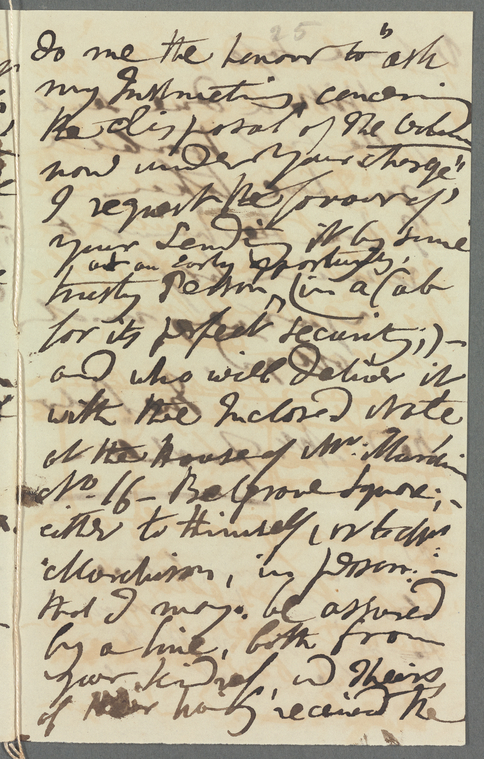 25
do me the honour to "ask
my Instructions, concerning
the disposal of the Column
now under your charge"
I request the favour of
your Sending it by some
at an early opportunity,
trusty Person, (in a Cab
for its perfect security;) –
and who will deliver it
with the Inclosed Note
at the House of Mr.
No 16 – Belgrave Square; –
either to Himself, or to Mrs
Murchison, in person: –
that I may be assured
by a line, both from
your kindness, and Theirs
of having received the